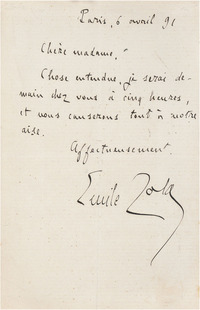 Paris, 6 avril 91
Chère madame,
Chose entendue, je serai de-
main chez vous à cinq heures,
et nous causerons tout à notre
aise.
Affectueusement.
Emile Zola